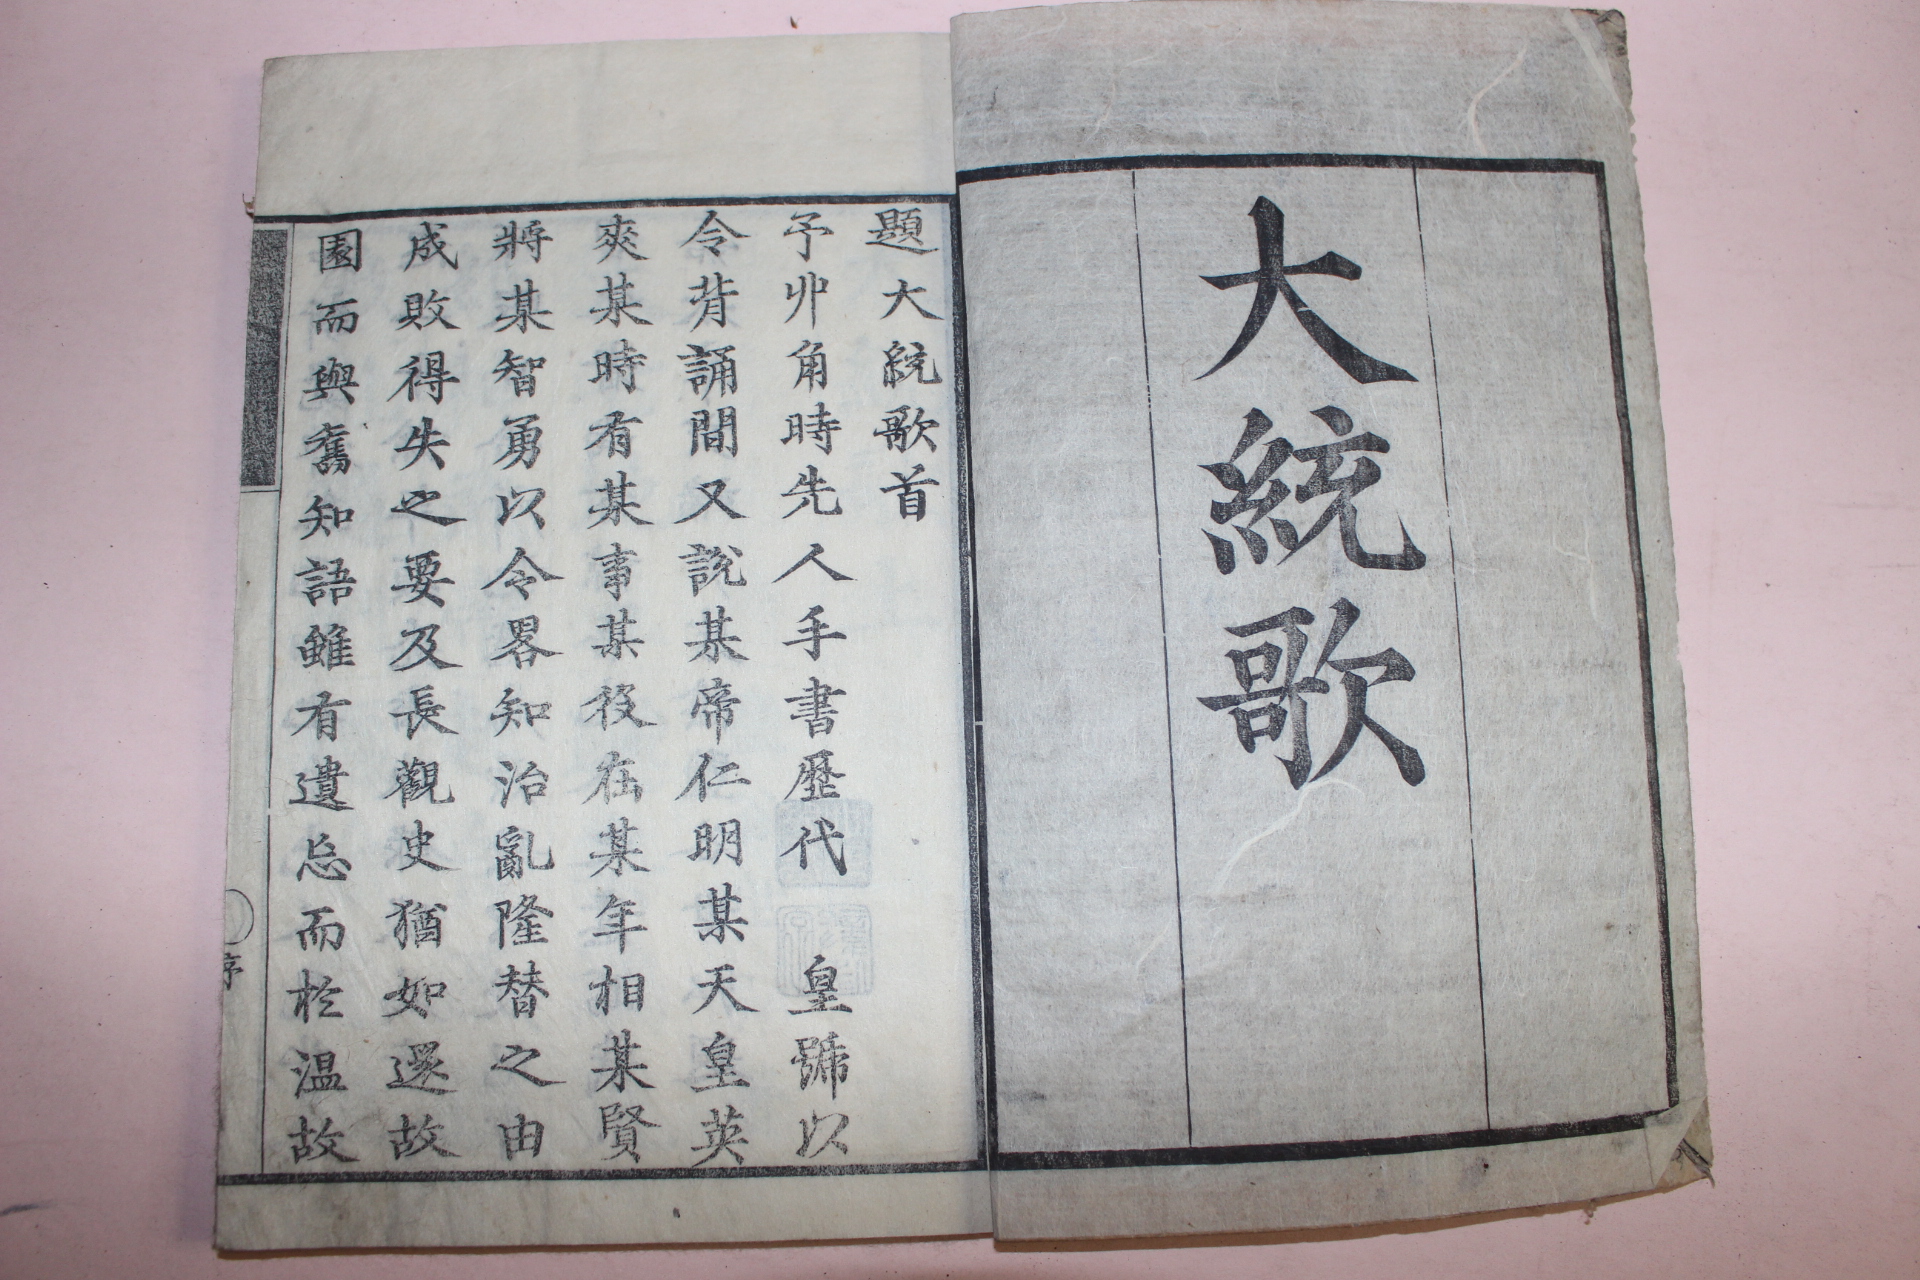 大統歌
題大統歌首
予丱角時先人手書歷代 皇號以
令背誦間又說某帝仁明某天皇英
爽某時有某事某役在某年相某賢
將某智勇以令畧知治亂隆替之由
成敗得失之要及長觀史猶如還故
園而與舊知語雖有遺忘而於温故
序